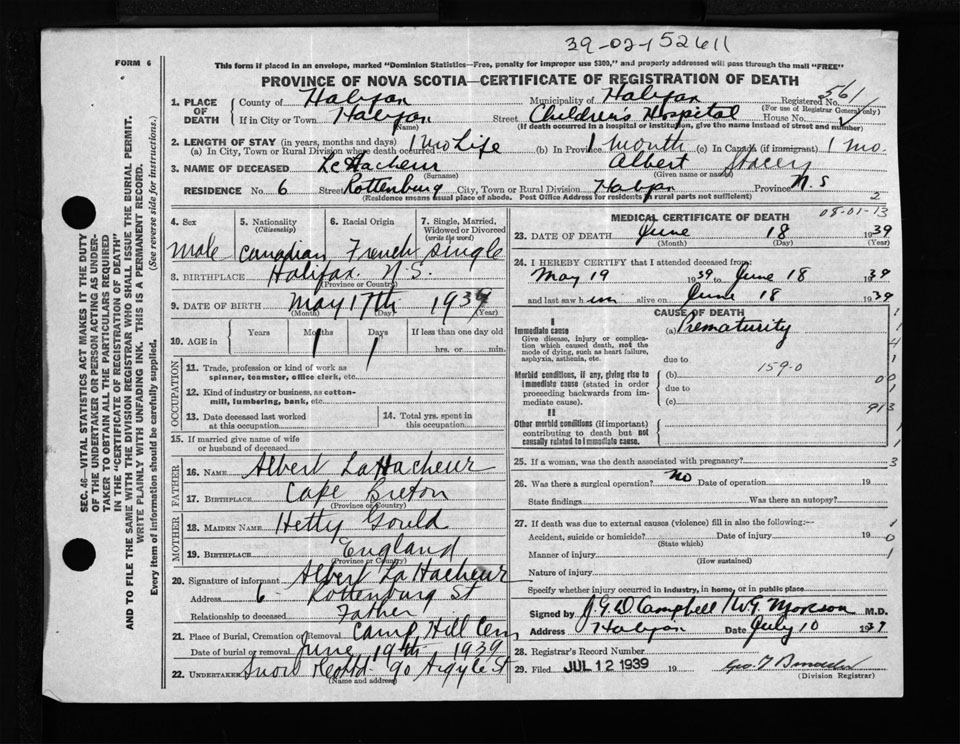 39-02-152611
FORM 6
This form if placed in an envelope, marked "Dominion Statistics—Free, penalty for improper use $300," and properly addressed will pass through the mail "FREE"
PROVINCE OF NOVA SCOTIA—CERTIFICATE OF REGISTRATION OF DEATH
1. PLACE OF DEATH
County of Halifax Municipality of Halifax Registered No. 561
(For use of Registrar General only)
If in City or Town Halifax Street Children's Hospital House No.
(Name) (If death occurred in a hospital or institution, give the name instead of street and number)
2. LENGTH OF STAY (in years, months and days)
(a) In City, Town or Rural Division where death occurred Life (b) In Province 1 month (c) In Canada (if immigrant) 1 mo.
3. NAME OF DECEASED LeHacheur Albert Stacey
(Surname) (Given name or names)
RESIDENCE No. 6 Street Rottenburg City, Town or Rural Division Halifax Province N.S
(Residence means usual place of abode. Post Office Address for residents in rural parts not sufficient) 2
4. Sex
male
5. Nationality
(Citizenship)
Canadian
6. Racial Origin
French
7. Single, Married, Widowed or Divorced
(write the word)
Single
8. BIRTHPLACE Halifax. N.S.
(Province or Country)
9. DATE OF BIRTH May 17th 1939
(Month) (Day) (Year)
10. AGE in
Years Months Days If less than one day old
1 1 hrs. or min.
OCCUPATION
11. Trade, profession or kind of work as spinner, teamster, office clerk, etc.
12. Kind of industry or business, as cotton-mill, lumbering, bank, etc.
13. Date deceased last worked at this occupation
14. Total yrs. spent in this occupation
15. If married give name of wife or husband of deceased
FATHER
16. NAME Albert LaHacheur
17. BIRTHPLACE Cape Breton
(Province or Country)
MOTHER
18. MAIDEN NAME Hetty Gould
19. BIRTHPLACE England
(Province or Country)
20. Signature of informant Albert LaHacheur
Address 6 Rottenburg St
Relationship to deceased Father
21. Place of Burial, Cremation or Removal Camp Hill Cem
Date of burial or removal June 19th 1939
22. UNDERTAKER Snow 90 Argyle St
(Name and address)
MEDICAL CERTIFICATE OF DEATH
08-01-13
23. DATE OF DEATH June 18 1939
(Month) (Day) (Year)
24. I HEREBY CERTIFY that I attended deceased from:
May 19 1939 to June 18 1939
and last saw him alive on June 18 1939
CAUSE OF DEATH
I
Immediate cause (a) Prematurity
Give disease, injury or complication which caused death, not the mode of dying, such as heart failure, asphyxia, asthenia, etc.
due to
Morbid conditions, if any, giving rise to immediate cause (stated in order proceeding backwards from immediate cause).
(b) 159-0
due to
(c)
913
II
Other morbid conditions (if important) contributing to death but not causally related to immediate cause.
25. If a woman, was the death associated with pregnancy?
26. Was there a surgical operation? No Date of operation 19
State findings Was there an autopsy?
27. If death was due to external causes (violence) fill in also the following:—
Accident, suicide or homicide? Date of injury 19
(State which)
Manner of injury
(How sustained)
Nature of injury
Specify whether injury occurred in industry, in home, or in public place
Signed by J.G.D Campbell / W.G. M.D.
Address Halifax Date July 10 1939
28. Registrar's Record Number
29. Filed JUL 12 1939 19
(Division Registrar)
SEC. 46—VITAL STATISTICS ACT MAKES IT THE DUTY OF THE UNDERTAKER OR PERSON ACTING AS UNDERTAKER TO OBTAIN ALL THE PARTICULARS REQUIRED IN THE "CERTIFICATE OF REGISTRATION OF DEATH" AND TO FILE THE SAME WITH THE DIVISION REGISTRAR WHO SHALL ISSUE THE BURIAL PERMIT.
WRITE PLAINLY WITH UNFADING INK. THIS IS A PERMANENT RECORD.
Every item of information should be carefully supplied. (See reverse side for instructions.)